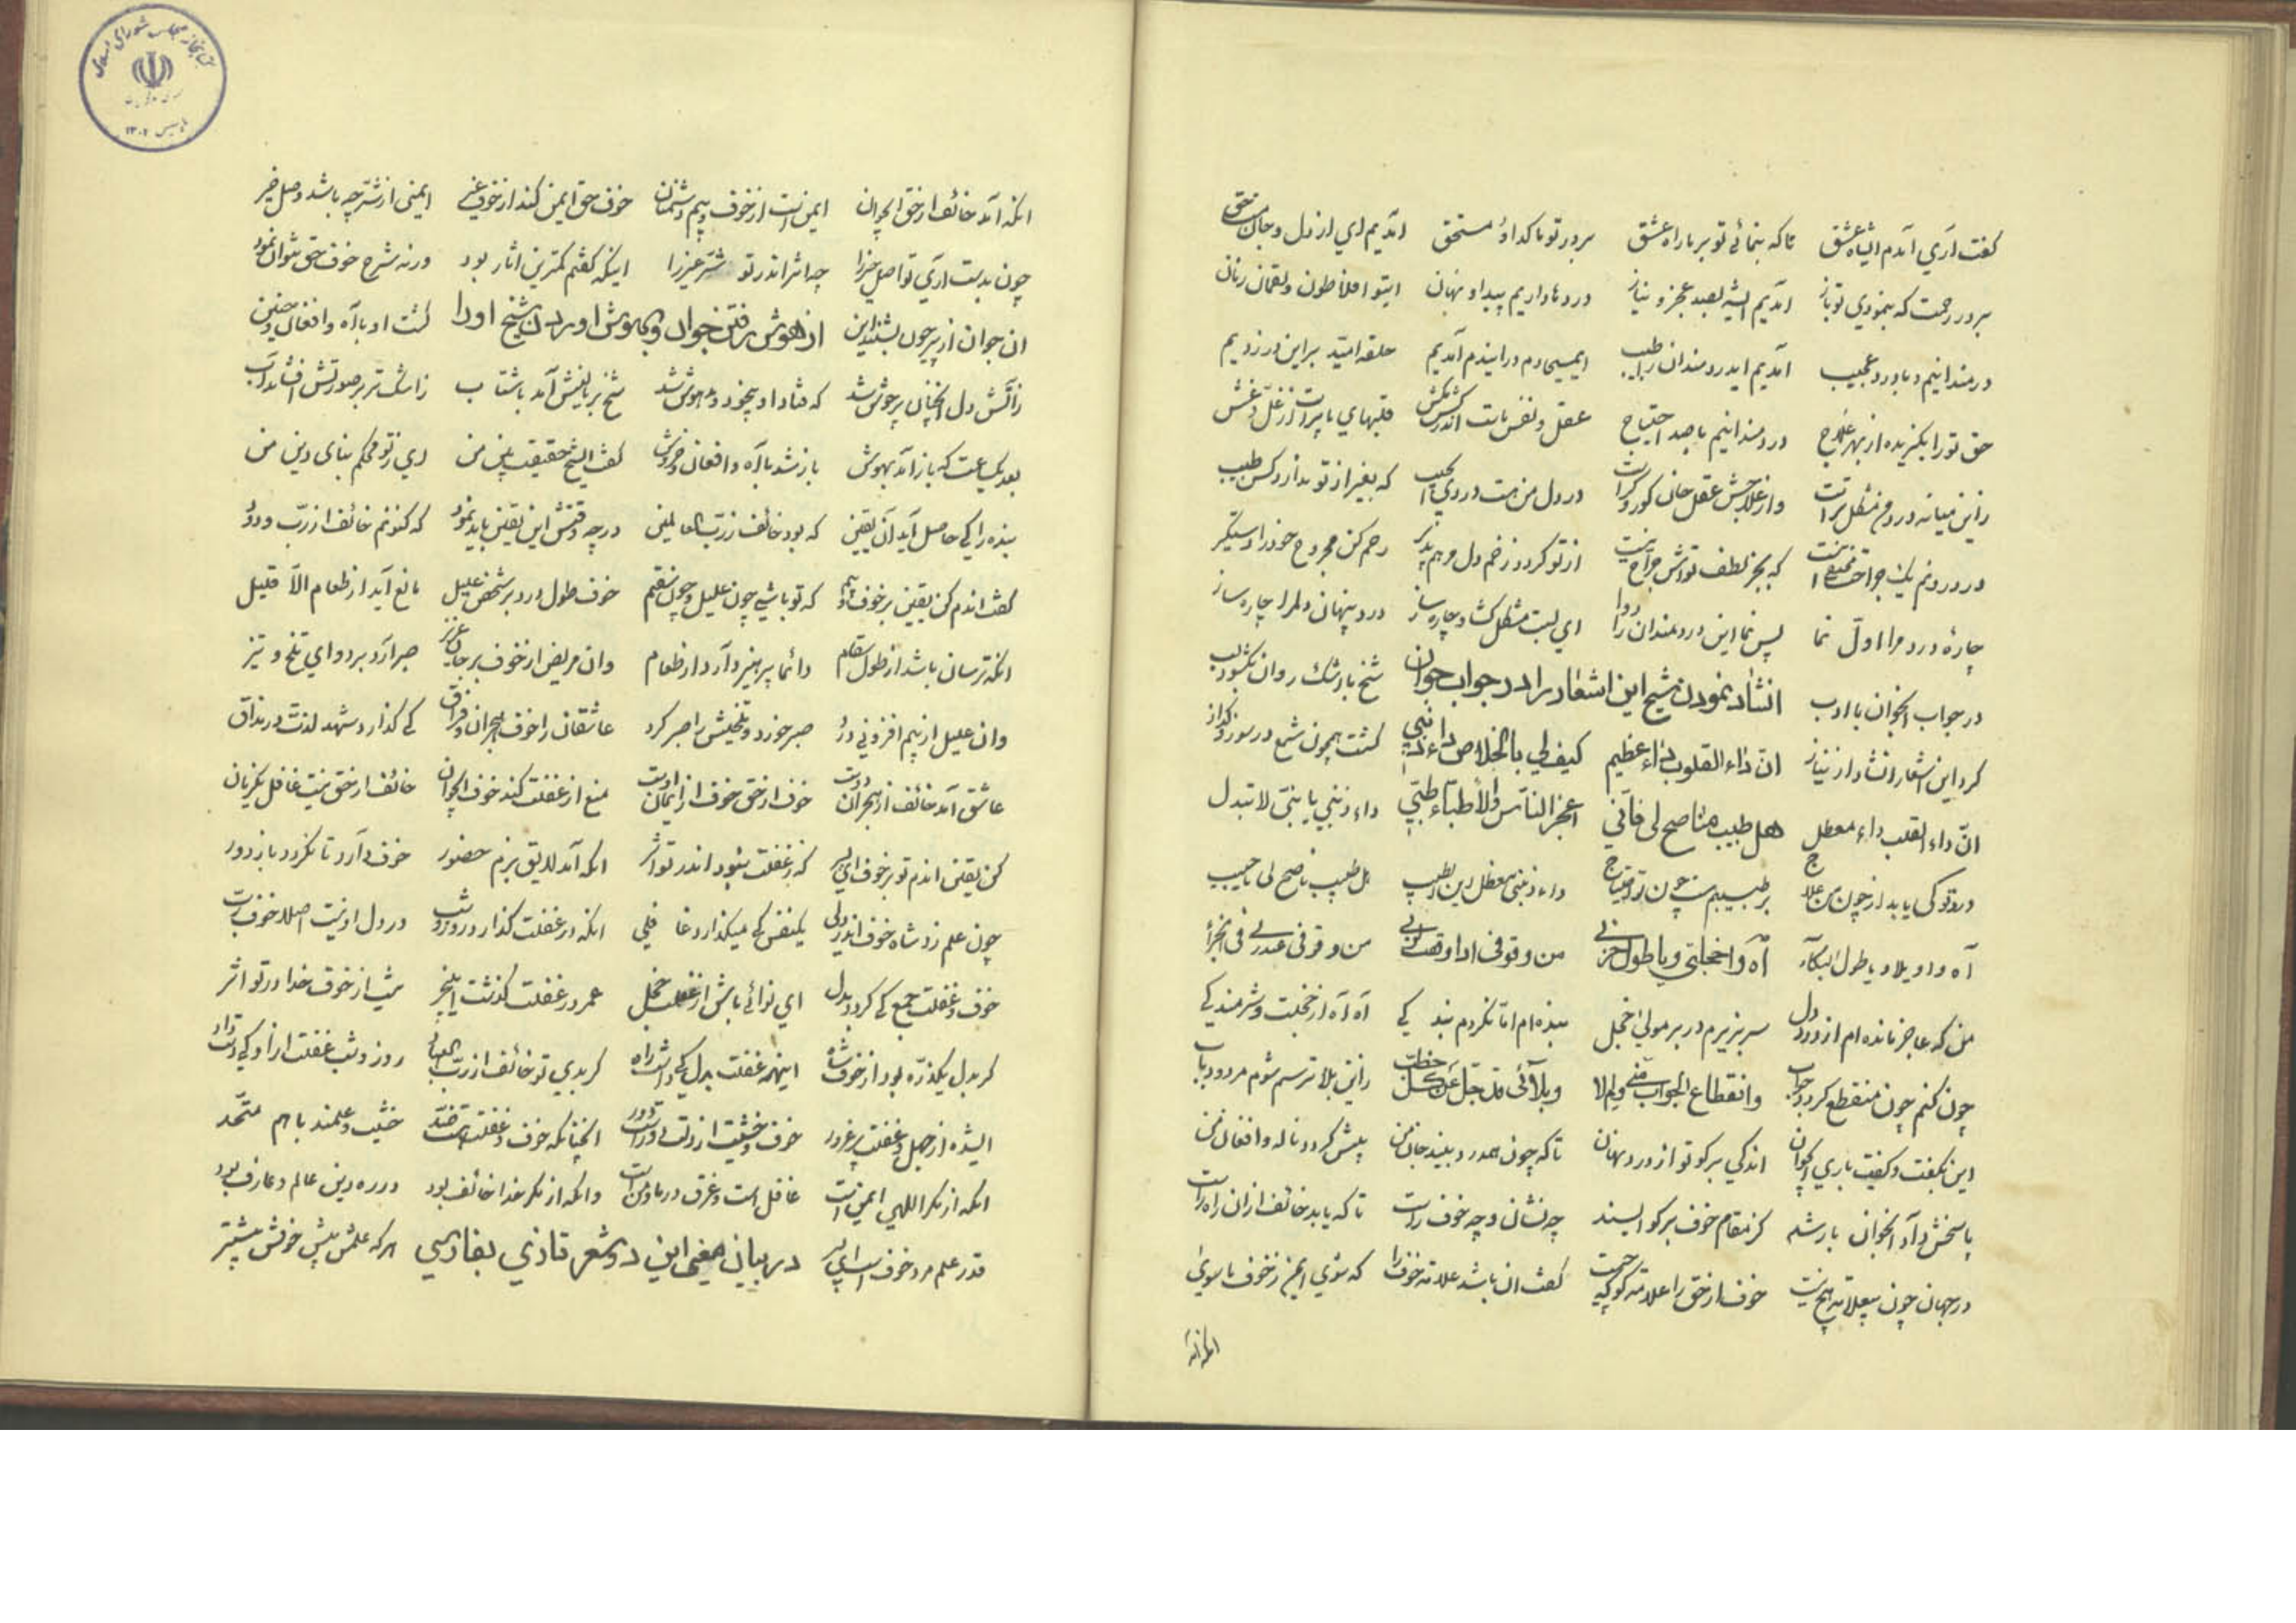 گفت آری آمدم ای شاه عشق تا که بنمائی تو بر ما راه عشق بر در تو ما گدا و مستحق آمدیم ای از دل و جان
بر در رحمت که بنمودی تو باز آمدیم ای شه بصد عجز و نیاز دردها داریم پیدا و نهان ای تو افلاطون و لقمان زمان
دردمندانیم و با درد عجیب آمدیم ای دردمندان را طبیب ای مسیحی دم در این دم آمدیم حلقه امید بر این در زدیم
حق تو را بگزیده از بهر علاج دردمندانیم با صد احتیاج عقل و نفس ماست اندر کشمکش قلبهای ما پر است از غل و غش
زین میانه درد من مشکل‌تر است وز علاجش عقل جان کور و کر است در دل من هست دردی ای حبیب که بغیر از تو ندارد کس طبیب
در درونم یک جراحت که بجز لطف تواش از تو گردد زخم دل مرهم پذیر رحم کن مجروح خود را دستگیر
چارهٔ درد مرا اول نما پس نما این دردمندان را دوا ای لبت مشکل گشا و چاره ساز درد پنهان دلم را چاره ساز
در جواب آنجوان با ادب انشاد نمودن شیخ این اشعار را در جواب جوان شیخ با اشک روان بگشود لب
کرد این اشعار انشاد از نیاز ان داء القلوب داء عظیم کیف لی بالخلاص من داء ذنبی گشت همچون شمع در سوز و گداز
ان داء القلب داء معضل هل طبیب مناصح لی فانی اعجز الناس والأطباء طبی داء ذنبی یا بنی لا تبدل
درد تو کی یابد از چون من علاج بر طبیبم هست چون تو احتیاج داء ذنبی معضل این الطبیب هل طبیب ناصح لی یا حبیب
آه وا ویلا و یا طول البکاء آه وا خجلتی و یا طول حزنی من وقوفی اذا وقفت لربی من وقوفی عند ربی فی الجزا
من که عاجز مانده‌ام از درد دل سر بزیرم در بر مولی خجل بنده‌ام اما نکردم بندگی آه آه از خجلت و شرمندگی
چون کنم چون منقطع گردد جواب وانقطاع الجواب منی ولم لا وبلائی قد جل عن کل خطب زین بلا ترسم شوم مردود باب
این بگفت و گفت باری ای جوان اندکی بر گو تو از درد نهان تا که چون همدرد بیند جان من بیش گردد ناله و افغان من
پاسخش داد آنجوان با رشد کز مقام خوف بر گو ای سند چه نشان و چه خوف راست تا که یابد خائف از آن راه راست
در جهان چون بی علامت هیچ نیست خوف از حق را علامت گو که چیست گفت آن باشد علامت خوف را که شوی ایمن ز خوف ما سوی
آنکه آمد خائف از حق ای جوان ایمن است از خوف و بیم دشمنان خوف حق ایمن کند از خوف غیر ایمنی از شر چه باشد وصل خیر
چون بدست آری تو اصل خیر را چه اثر اندر تو شر غیر را اینکه گفتم کمترین آثار بود ورنه شرح خوف حق نتوان نمود
آن جوان از پیر چون بشنید این از هوش رفتن جوان و بهوش اوردن شیخ او را گشت او با آه و افغان و حنین
ز آتش دل آنچنان پرجوش شد که فتاد او بیخود و مدهوش شد شیخ بر بالینش آمد با شتاب ز اشک تر بر صورتش افشاند آب
بعد یکساعت که باز آمد بهوش باز شد با آه و افغان و خروش گفت ای شیخ حقیقت بین من ای ز تو محکم بنای دین من
بنده را کی حاصل آید آن یقین که بود خائف ز رب العالمین در چه وقتش این یقین باید نمود که کنونم خائف از رب ودود
گفت اندم کن یقین بر خوف و بیم که تو باشی چون علیل و چون سقیم خوف طول درد بر شخص علیل مانع آید از طعام الا قلیل
آنکه ترسان باشد از طول سقام دائما پرهیز دارد از طعام وان مریض از خوف بر جان عزیز صبر آرد بر دوای تلخ و تیز
وان علیل از بیم افزونی درد صبر خورد و تلخیش را صبر کرد عاشقان را خوف هجران و فراق کی گذارد شهد لذت در مذاق
عاشق آمد خائف از هجران دوست خوف از حق خوف از ایمان اوست منع از غفلت کند خوف ای جوان خائف از حق نیست غافل یکزمان
کن یقین اندم تو بر خوف ای پسر که ز غفلت نبود اندر تو اثر آنکه آمد لایق بزم حضور خوف دارد تا نگردد باز دور
چون علم زد شاه خوف اندر دلی یکنفس کی میگذارد غافلی آنکه در غفلت گذارد روز و شب در دل او نیست اصلا خوف رب
خوف و غفلت جمع کی گردد بدل ای نوائی باش از غفلت خجل عمر در غفلت گذشت ای بیخبر نیست از خوف خدا در تو اثر
گر بدل یکذره بود از خوف شاه اینهمه غفلت بدل کی داشت راه گر بدی تو خائف از رب العباد روز و شب غفلت از او کی دست داد
ای شده از جهل و غفلت پر غرور خوف و خشیت از دلت دور است دور آنچنانکه خوف و غفلت هست ضد خشیت و علمند با هم متحد
آنکه از مکر اللهی ایمن است غافل است و غرق دریا و من است وانکه از مکر خدا خائف بود در ره دین عالم و عارف بود
قدر علم مرد خوف است ای پسر در بیان معنی این دو شعر تازی بفارسی هر که علمش بیش خوفش بیشتر